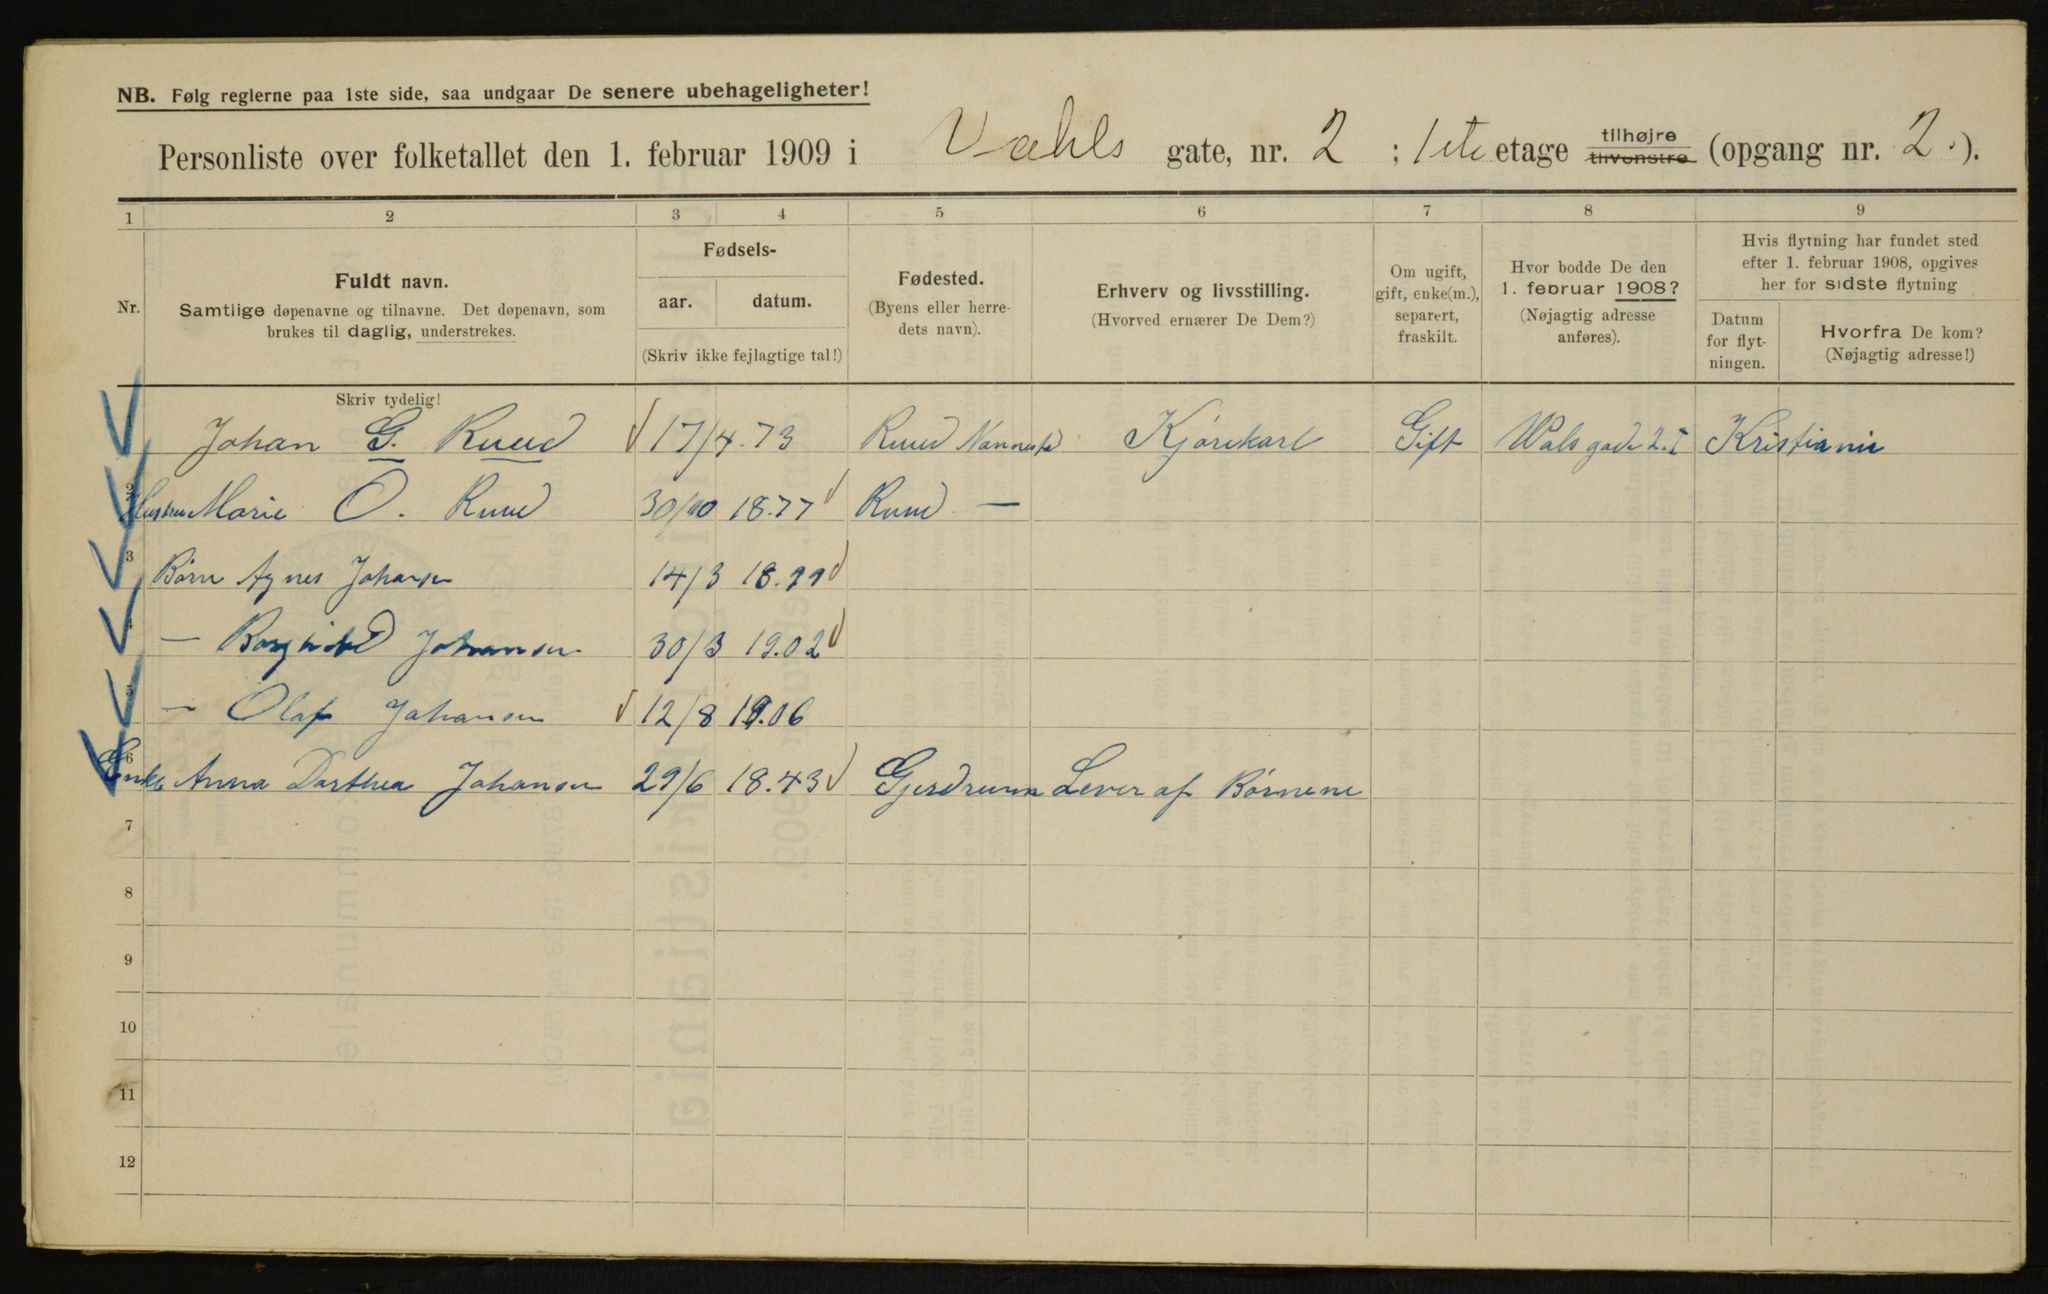 NB. Følg reglerne paa 1ste side, saa undgaar De senere ubehageligheter!
Personliste over folketallet den 1. februar 1909 i Vahls gate, nr. 2 ; 1ste etage tilhøjre tilvenstre (opgang nr. 2.).
1 2 3 4 5 6 7 8 9
Nr.
Fuldt navn.
Samtlige døpenavne og tilnavne. Det døpenavn, som
brukes til daglig, understrekes.
Fødsels-
aar. datum.
(Skriv ikke fejlagtige tal!)
Fødested.
(Byens eller herre-
dets navn).
Erhverv og livsstilling.
(Hvorved ernærer De Dem?)
Om ugift,
gift, enke(m.),
separert,
fraskilt.
Hvor bodde De den
1. februar 1908?
(Nøjagtig adresse
anføres).
Hvis flytning har fundet sted
efter 1. februar 1908, opgives
her for sidste flytning
Datum
for flyt-
ningen.
Hvorfra De kom?
(Nøjagtig adresse!)
Skriv tydelig!
Johan G. Ruud 17/4.73 Ruud Nannestd Kjørekarl Gift Wals gade 2.I Kristiania
2 Hustru Marie O. Ruud 30/10 18.77 Ruud —
3 Børn Agnes Johansen 14/3 18.99
4 — Borghild Johansen 30/3 19.02
5 — Olaf Johansen 12/8 19.06
6 Enke Anna Dorthea Johansen 29/6 18.43 Gjerdrum Lever af Børnene
7
8
9
10
11
12